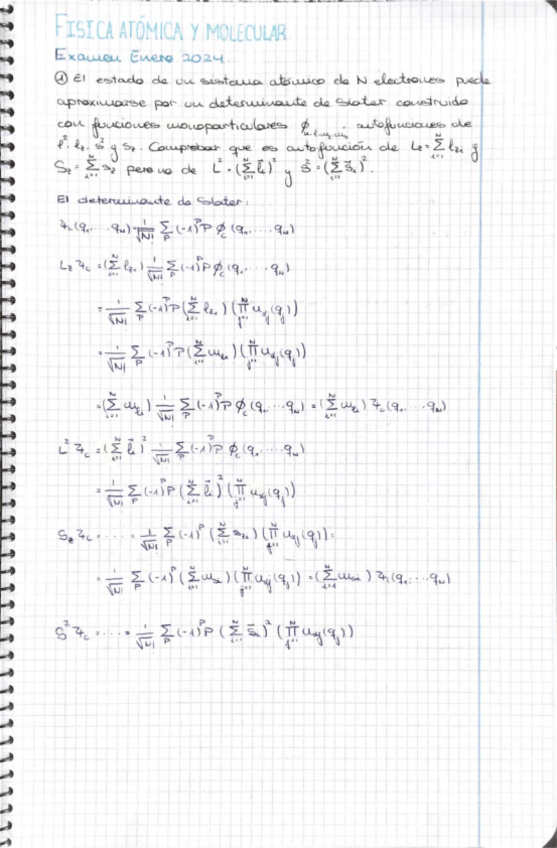 FISICA ATÓMICA Y MOLECULAR
Examen Enero 2024.
① El estado de un sistema atómico de N electrones puede
aproximarse por un determinante de Slater construido
con funciones monoparticulares ϕ autofunciones de
l², lz, s² y sz. Comprobar que es autofunción de Lz = Σ lzi y
Sz = Σ sz pero no de L² = (Σ l⃗i)² y S² = (Σ s⃗i)².
El determinante de Slater:
Ψc(q1, ... qN) = 1/√N! Σ (-1)^P P ϕc(q1, ... qN)
Lz Ψc = (Σ lzi) 1/√N! Σ (-1)^P P ϕc(q1, ... qN)
= 1/√N! Σ (-1)^P P (Σ lzi) (Π uαj(qj))
= 1/√N! Σ (-1)^P P (Σ mli) (Π uαj(qj))
= (Σ mli) 1/√N! Σ (-1)^P P ϕc(q1, ... qN) = (Σ mli) Ψc(q1, ... qN)
L² Ψc = (Σ l⃗i)² 1/√N! Σ (-1)^P P ϕc(q1, ... qN)
= 1/√N! Σ (-1)^P P (Σ l⃗i)² (Π uαj(qj))
Sz Ψc = ..... = 1/√N! Σ (-1)^P (Σ szi) (Π uαj(qj)) =
= 1/√N! Σ (-1)^P (Σ msi) (Π uαj(qj)) = (Σ msi) Ψc(q1, ... qN)
S² Ψc = .... = 1/√N! Σ (-1)^P P (Σ s⃗i)² (Π uαj(qj))